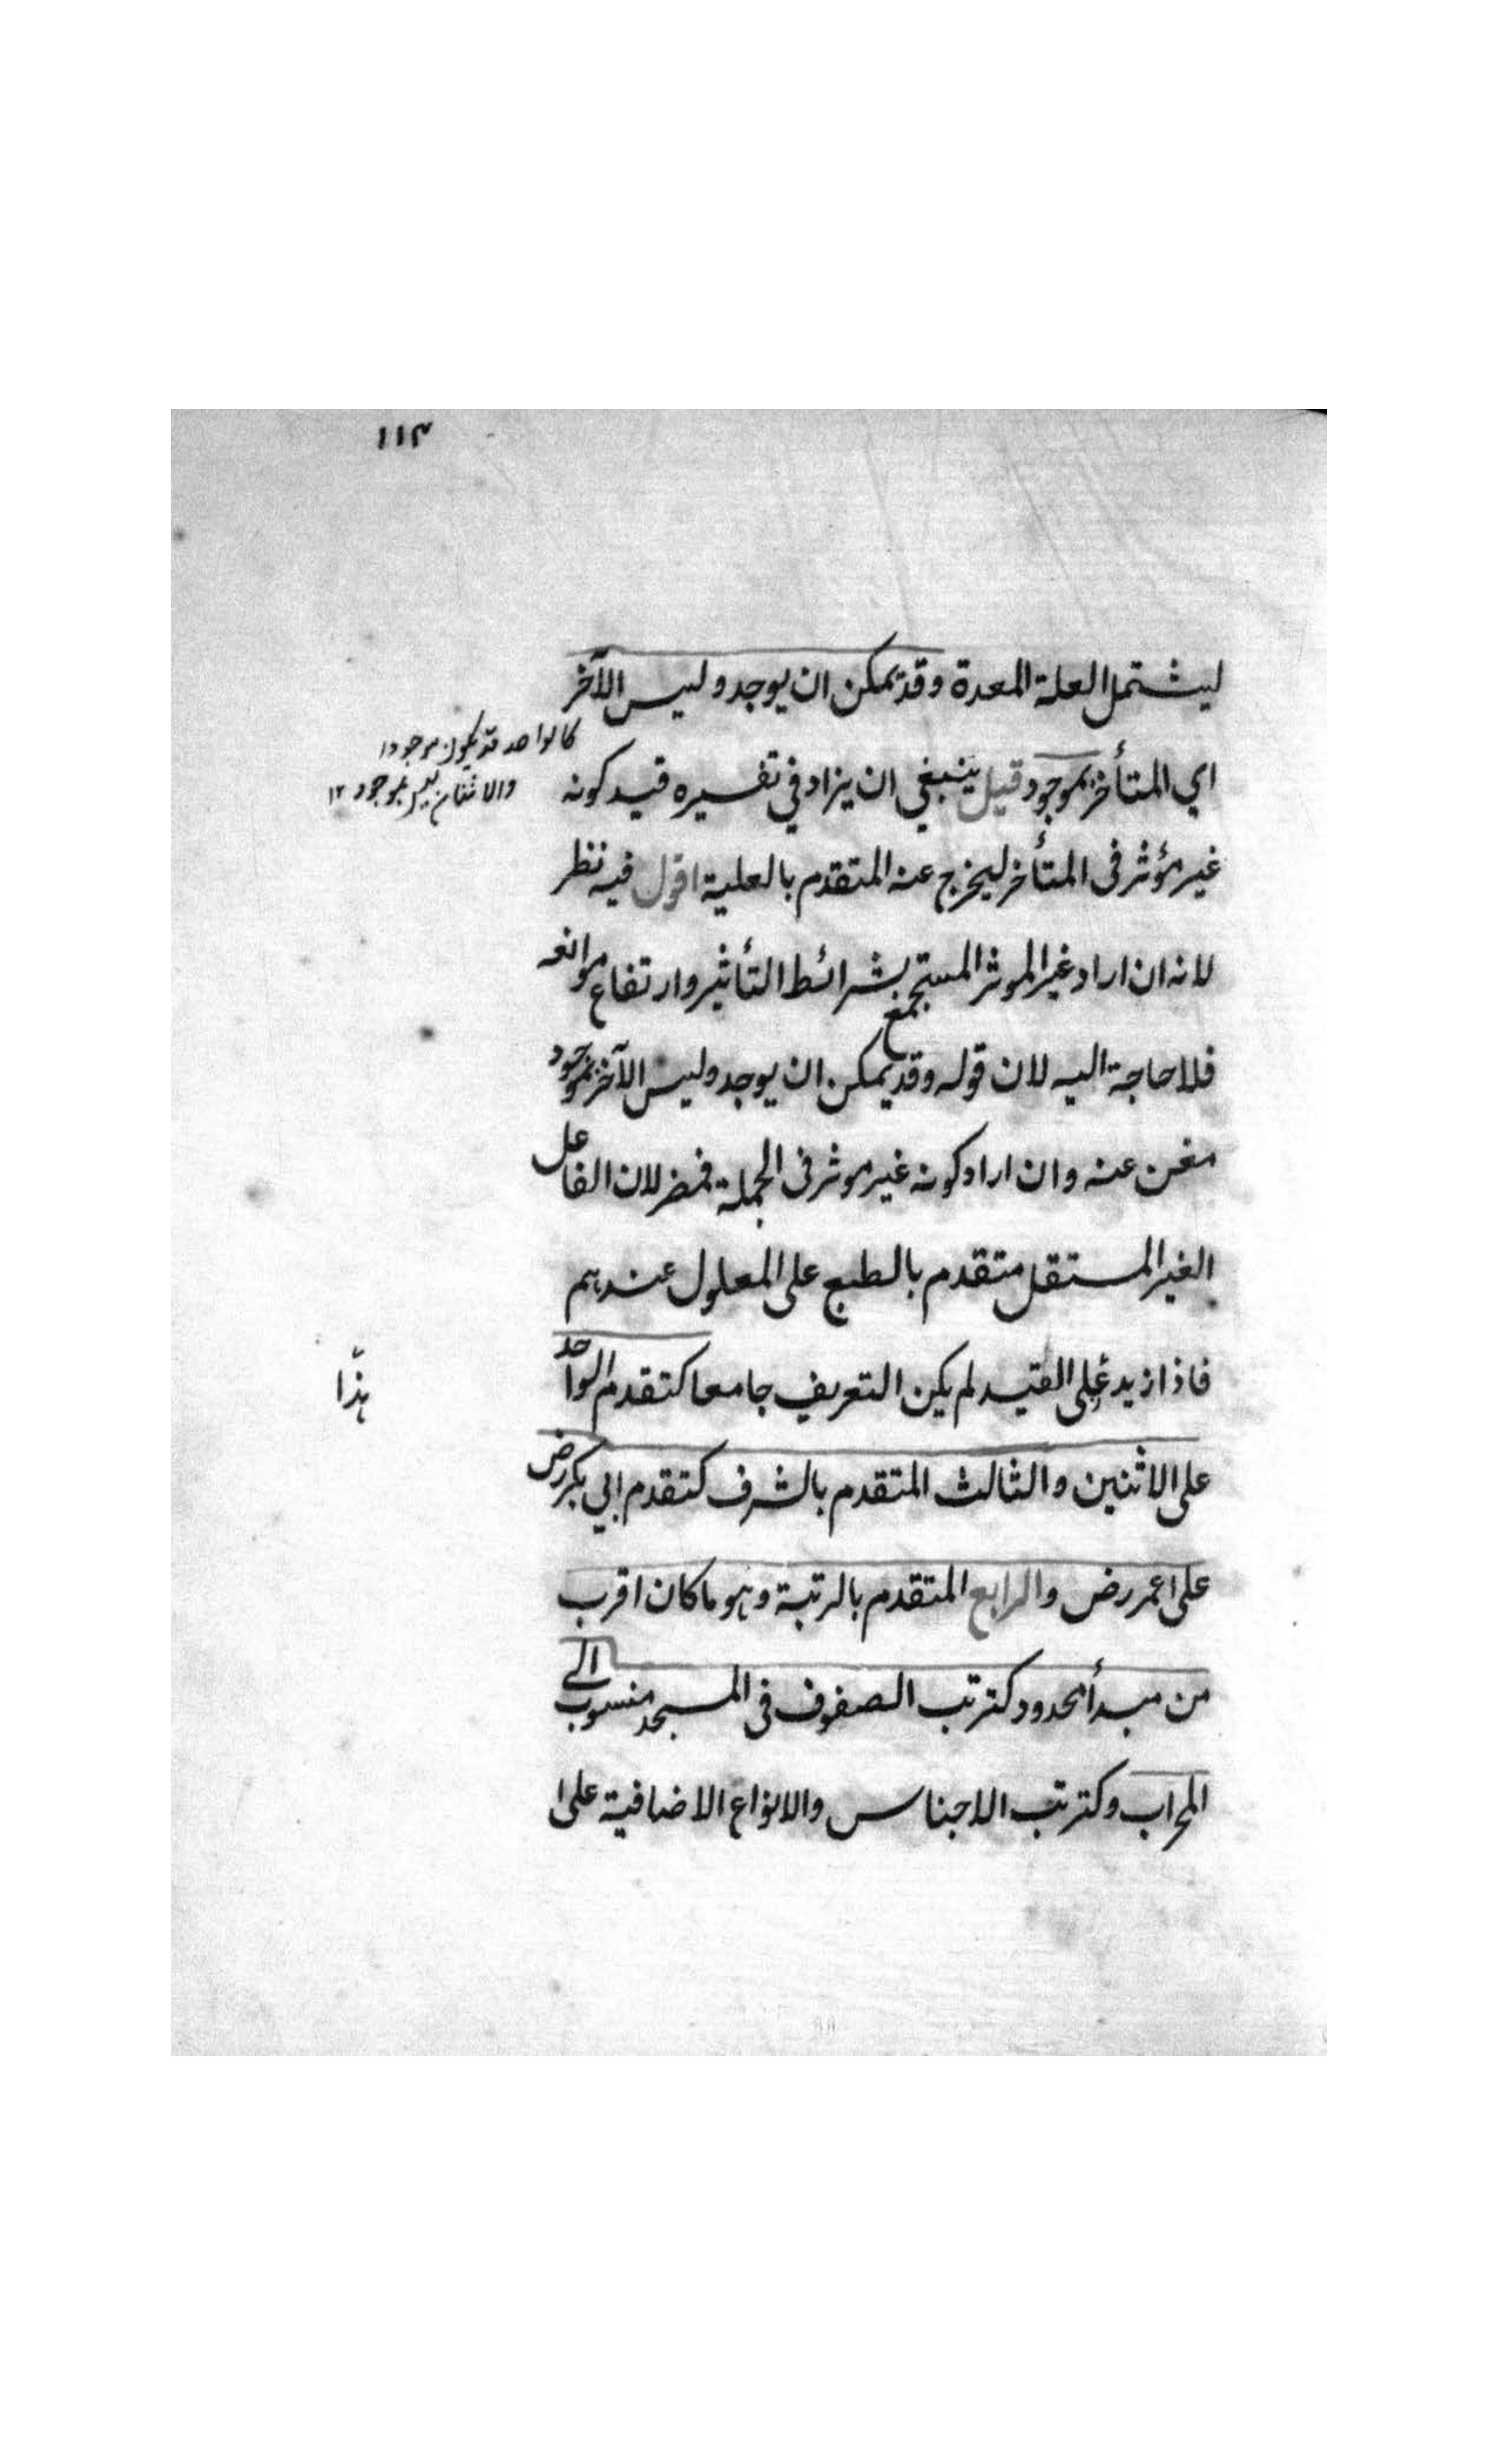 ١١٣
ليشتمل العلة المعدة وقد يمكن ان يوجد وليس الآخر
كالواحد قد يكون موجودا
والاثنان ليس بموجود ١٢
اي المتأخر بموجود قيل ينبغي ان يزاد في تفسيره قيد كونه
غير مؤثر فى المتأخر ليخرج عنه المتقدم بالعلية اقول فيه نظر
لانه ان اراد غير الموثر المستجمع بشرائط التأثير وارتفاع موانعه
فلا حاجة اليه لان قوله وقد يمكن ان يوجد وليس الآخر بموجود
مغن عنه وان اراد كونه غير موثر فى الجملة فمضر لان الفاعل
الغير المستقل متقدم بالطبع على المعلول عندهم
فاذا زيد القيد لم يكن التعريف جامعا كتقدم الواحد
هذا
على الاثنين والثالث المتقدم بالشرف كتقدم ابي بكر رض
على عمر رض والرابع المتقدم بالرتبة وهو ما كان اقرب
من مبدأ محدود كترتب الصفوف فى المسجد منسوب الى
المحراب وكترتب الاجناس والانواع الاضافية على